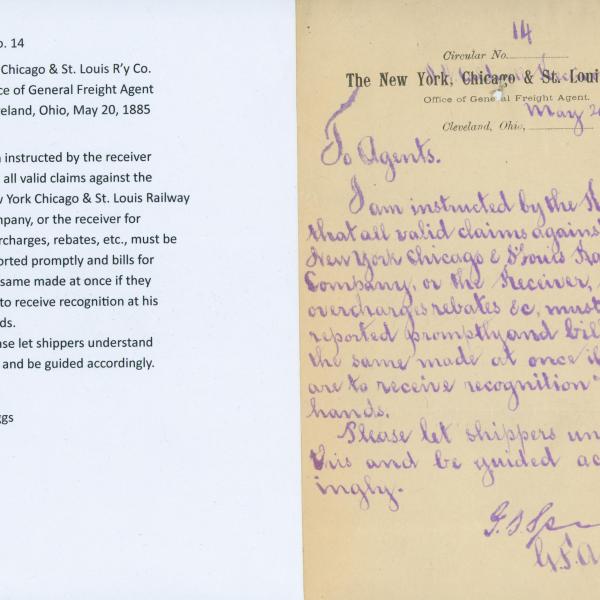 o. 14
Chicago & St. Louis R'y Co.
ce of General Freight Agent
eland, Ohio, May 20, 1885
instructed by the receiver
all valid claims against the
w York Chicago & St. Louis Railway
mpany, or the receiver for
rcharges, rebates, etc., must be
orted promptly and bills for
same made at once if they
to receive recognition at his
ds.
se let shippers understand
and be guided accordingly.
ggs
14
Circular No.
The New York, Chicago & St. Loui
Office of General Freight Agent.
Cleveland, Ohio, May 20
To Agents.
I am instructed by the R
that all valid claims against
New York Chicago & St Louis Ra
Company, or the Receiver,
overcharges rebates &c, must
reported promptly and bill
the same made at once i
are to receive recognition
hands.
Please let shippers un
this and be guided ac
ingly.
G.F.A